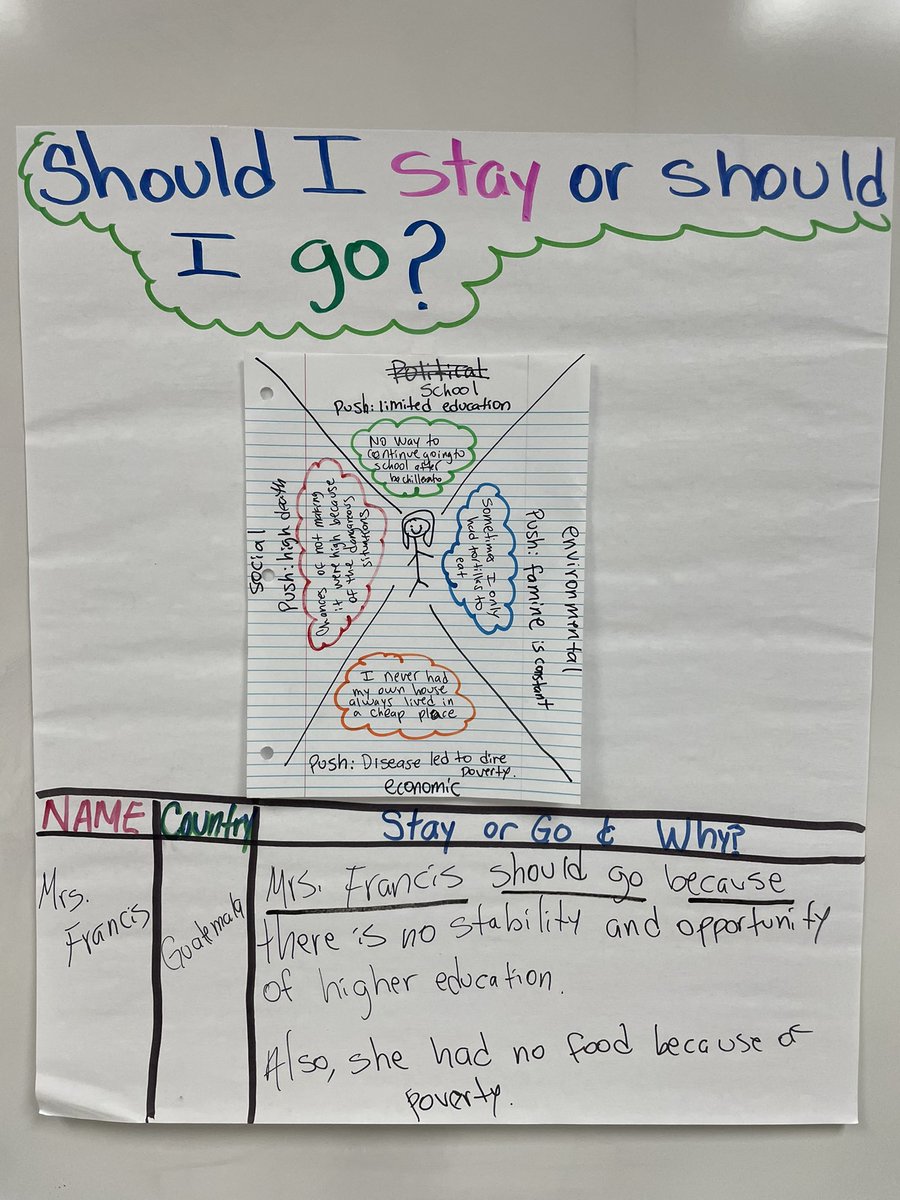 Should I stay or should
I go?
Political
School
Push: limited education
No way to
continue going to
school after
bachillerato
social
Push: high death
Chances of not making
it were high because
of the dangerous
situations
Sometimes I only
had tortillas to
eat
Push: famine is constant
environmental
I never had
my own house
always lived in
a cheap place
Push: Disease led to dire
poverty.
economic
NAME Country Stay or Go & Why?
Mrs.
Francis
Guatemala
Mrs. Francis should go because
there is no stability and opportunity
of higher education.
Also, she had no food because of
poverty.